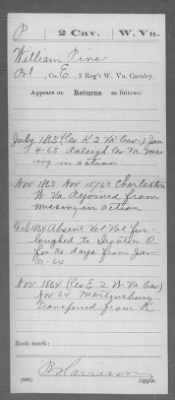 P | 2 Cav. | W. Va.
William Pine
Pvt., Co. E, 2 Reg't W. Va. Cavalry.
Appears on Returns as follows:
July 1863 (Co K 2 Va Cav)
4-63 Raleigh Co Va miss
ing in action
Nov 1863 Nov 15/63 Charleston
W Va Rejoined from
missing in action
Feb 1864 Absent Vet Vol fur
loughed to Ironton O.
for 30 days from Jan
31-64
Nov 1864 (Co E 2 W Va Cav)
Nov 64 Martinsburg
transferred from K
Book mark:
Harrison
Copyist.